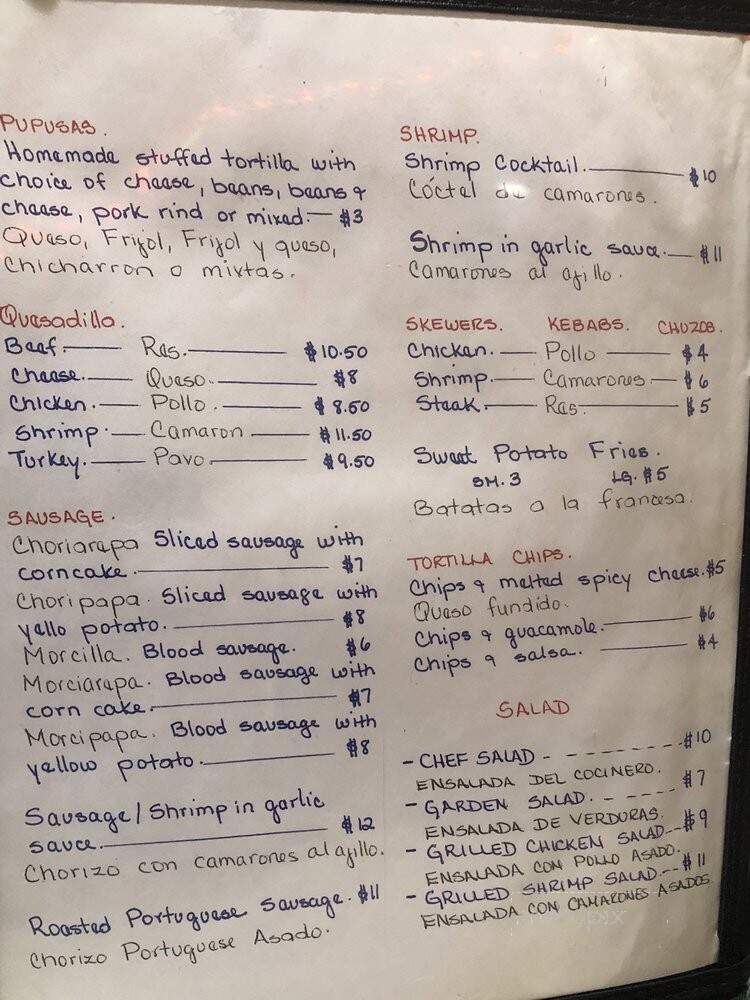 PUPUSAS.
Homemade stuffed tortilla with
choice of cheese, beans, beans &
cheese, pork rind or mixed. $3
Queso, Frijol, Frijol y queso,
Chicharron o mixtas.
Quesadilla.
Beef. Res. $10.50
Cheese. Queso. $8
Chicken. Pollo. $8.50
Shrimp. Camaron $11.50
Turkey. Pavo. $9.50
SAUSAGE.
Choriarepa Sliced sausage with
corncake. $7
Choripapa. Sliced sausage with
yello potato. $8
Morcilla. Blood sausage. $6
Morciarepa. Blood sausage with
corn cake. $7
Morcipapa. Blood sausage with
yellow potato. $8
Sausage/Shrimp in garlic
sauce. $12
Chorizo con camarones al ajillo.
Roasted Portuguese Sausage. $11
Chorizo Portuguese Asado.
SHRIMP.
Shrimp Cocktail. $10
Cóctel de camarones.
Shrimp in garlic sauce. $11
Camarones al ajillo.
SKEWERS. KEBABS. CHUZOS.
Chicken. Pollo $4
Shrimp. Camarones $6
Steak. Res. $5
Sweet Potato Fries.
SM. 3 LG. $5
Batatas a la francesa.
TORTILLA CHIPS.
Chips & melted spicy cheese. $5
Queso fundido.
Chips & guacamole. $6
Chips & salsa. $4
SALAD
- CHEF SALAD - - - - - - - - $10
ENSALADA DEL COCINERO.
- GARDEN SALAD. - - - - - $7
ENSALADA DE VERDURAS.
- GRILLED CHICKEN SALAD. - - $9
ENSALADA CON POLLO ASADO.
- GRILLED SHRIMP SALAD. - - $11
ENSALADA CON CAMARONES ASADOS